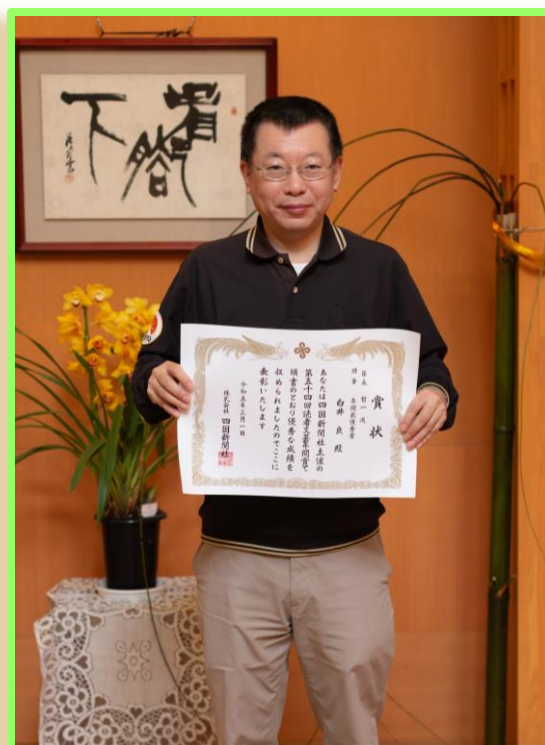 看脚下
賞状
随筆 年間最優秀賞
白井 良 殿
あなたは四国新聞社主催の
第五十四回読者文芸年間賞で
頭書のとおり優秀な成績を
収められましたのでここに
表彰いたします
令和五年三月一日
株式会社 四国新聞社